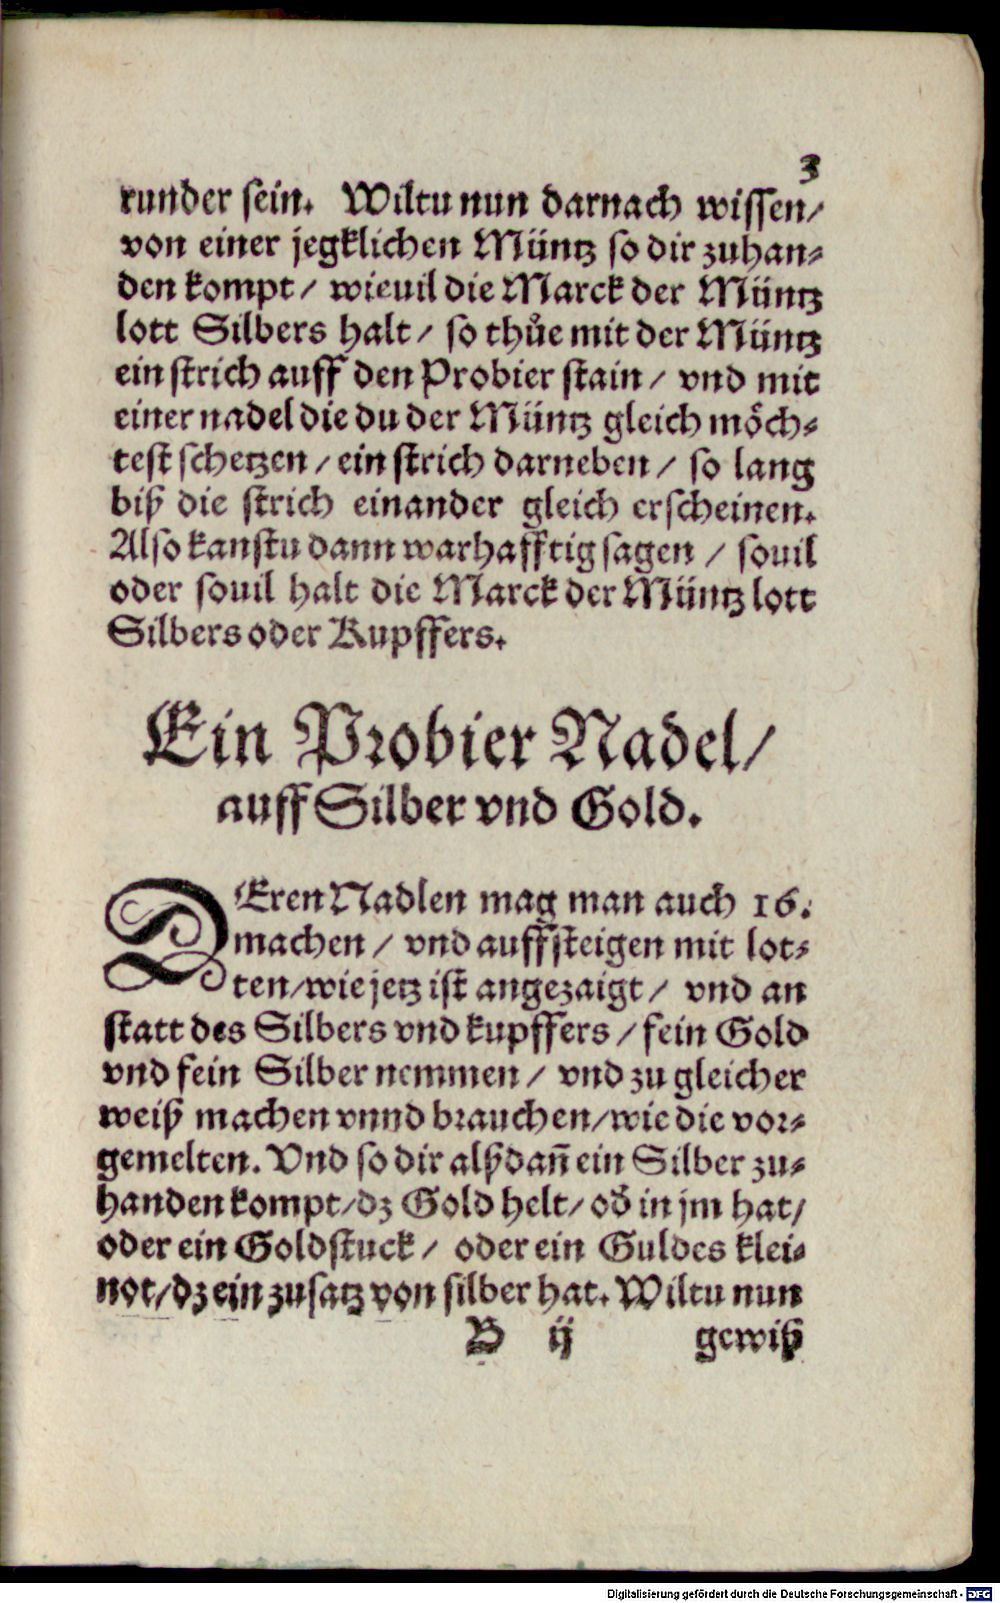 3
runder sein. Wiltu nun darnach wissen/
von einer jegklichen Müntz so dir zuhan⸗
den kompt/ wieuil die Marck der Müntz
lott Silbers halt/ so thůe mit der Müntz
ein strich auff den Probier stain/ vnd mit
einer nadel die du der Müntz gleich möch⸗
test schetzen/ ein strich darneben/ so lang
biß die strich einander gleich erscheinen.
Also kanstu dann warhafftig sagen/ souil
oder souil halt die Marck der Müntz lott
Silbers oder Kupffers.
Ein Probier Nadel/
auff Silber vnd Gold.
DEren Nadlen mag man auch 16.
machen/ vnd auffsteigen mit lot⸗
ten/wie jetz ist angezaigt/ vnd an
statt des Silbers vnd kupffers/ fein Gold
vnd fein Silber nemmen/ vnd zu gleicher
weiß machen vnnd brauchen/wie die vor⸗
gemelten. Vnd so dir alßdañ ein Silber zu⸗
handen kompt/dz Gold helt/ od̕ in jm hat/
oder ein Goldstuck/ oder ein Guldes klei⸗
not/dz ein zusatz von silber hat. Wiltu nun
B ij gewiß
Digitalisierung gefördert durch die Deutsche Forschungsgemeinschaft - DFG